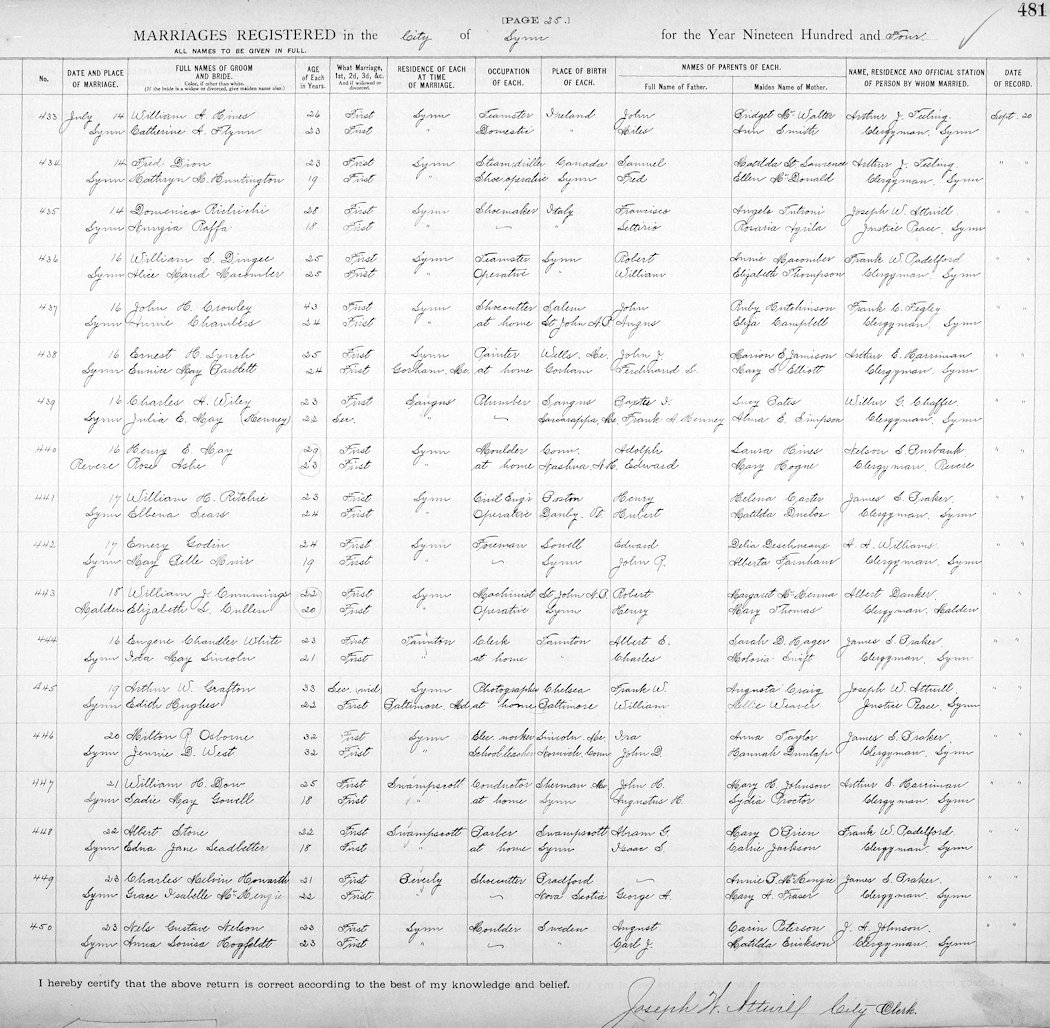 481
[PAGE 25.]
MARRIAGES REGISTERED in the City of Lynn for the Year Nineteen Hundred and Four.
ALL NAMES TO BE GIVEN IN FULL.
No. DATE AND PLACE OF MARRIAGE. FULL NAMES OF GROOM AND BRIDE. Color, if other than white. (If the bride is a widow or divorced, give maiden name also.) AGE of Each in Years. What Marriage, 1st, 2d, 3d, &c. And if widowed or divorced. RESIDENCE OF EACH AT TIME OF MARRIAGE. OCCUPATION OF EACH. PLACE OF BIRTH OF EACH. NAMES OF PARENTS OF EACH. Full Name of Father. Maiden Name of Mother. NAME, RESIDENCE AND OFFICIAL STATION OF PERSON BY WHOM MARRIED. DATE OF RECORD.
433 July 14 William A. Hines 26 First Lynn Teamster Ireland John Bridget McWalter Arthur J. Teeling Sept. 20
Lynn Catherine A. Flynn 23 First " Domestic " Miles Ann Smith Clergyman, Lynn
434 14 Fred Dion 23 First Lynn Steam driller Canada Samuel Matilda St Lawrence Arthur J. Teeling " "
Lynn Kathryn M. Huntington 19 First " Shoe operative Lynn Fred Ellen McDonald Clergyman, Lynn
435 14 Domenico 28 First Lynn Shoemaker Italy Francisco Angelo Joseph W. Attwill " "
Lynn Raffa 18 First " — " Letterio Rosaria Justice Peace, Lynn
436 16 William S. Dingee 25 First Lynn Teamster Lynn Robert Annie Macomber Frank W. Padelford " "
Lynn Alice Maud Macomber 25 First " Operative " William Elizabeth Thompson Clergyman, Lynn
437 16 John H. Crowley 43 First Lynn Shoecutter Salem John Ruby Hutchinson Frank C. Figley " "
Lynn Annie Chambers 24 First " at home St John N.B. Angus Eliza Campbell Clergyman, Lynn
438 16 Ernest H. Lynch 25 First Lynn Painter Wells, Me. John J. Marion E. Jamison Arthur E. Harriman " "
Lynn Eunice May Bartlett 24 First Gorham, Me. at home Gorham Ferdinand S. Mary S. Elliott Clergyman, Lynn
439 16 Charles A. Wiley 23 First Saugus Plumber Saugus Lucy Bates Wilbur G. Chaffee " "
Lynn Julia E. May (Kenney) 22 Sec. " — Saccarappa, Me. Frank A. Kenney Alma E. Simpson Clergyman, Lynn
440 16 Henry E. May 29 First Lynn Moulder Conn. Adolph Laura Hines Nelson S. Burbank " "
Revere Rose Ashe 23 First " at home Nashua, N.H. Edward Mary Hogue Clergyman, Revere
441 17 William H. Ritchie 23 First Lynn Civil Eng'r Boston Henry Helena Carter James S. Braker " "
Lynn Elbena Sears 24 First " Operative Danby, Vt. Hubert Matilda Clergyman, Lynn
442 17 Emery Godin 24 First Lynn Foreman Lowell Edward Delia A. A. Williams " "
Lynn May Belle Muir 19 First " — Lynn John R. Alberta Farnham Clergyman, Lynn
443 18 William J. Cummings 22 First Lynn Machinist St John N.B. Robert Margaret McKenna Albert Danker " "
Malden Elizabeth L. Cullen 20 First " Operative Lynn Henry Mary Thomas Clergyman, Malden
444 16 Eugene Chandler White 23 First Taunton Clerk Taunton Albert E. Sarah D. Hager James S. Braker " "
Lynn Ida May Lincoln 21 First " at home " Charles Swift Clergyman, Lynn
445 19 Arthur W. Grafton 33 Sec. wid. Lynn Photographer Chelsea Frank W. Augusta Craig Joseph W. Attwill " "
Lynn Edith Hughes 22 First Baltimore, Md. at home Baltimore William Nellie Weaver Justice Peace, Lynn
446 20 Milton P. Osborne 32 First Lynn Elec. worker Lincoln, Me. Ira Anna Taylor James S. Braker " "
Lynn Jennie D. West 32 First " School teacher Norwich, Conn John D. Hannah Dunlap Clergyman, Lynn
447 21 William H. Dow 25 First Swampscott Conductor Sherman Me. John H. Mary H. Johnson Arthur E. Harriman " "
Lynn Sadie May Gowell 18 First " at home Lynn Augustus H. Lydia Proctor Clergyman, Lynn
448 22 Albert Stone 22 First Swampscott Barber Swampscott Abram G. Mary O'Brien Frank W. Padelford " "
Lynn Edna Jane Leadbetter 18 First " at home Lynn Isaac S. Carrie Jackson Clergyman, Lynn
449 23 Charles Melvin Howarth 21 First Beverly Shoecutter Bradford — Annie B. McKenzie James S. Braker " "
Lynn Grace Isabelle McKenzie 22 First " — Nova Scotia George A. Mary A. Fraser Clergyman, Lynn
450 23 Nels Gustave Nelson 23 First Lynn Moulder Sweden August Carin Peterson J. A. Johnson " "
Lynn Anna Louisa Hogfeldt 23 First " — " Carl J. Matilda Erickson Clergyman, Lynn
I hereby certify that the above return is correct according to the best of my knowledge and belief.
Joseph W. Attwill City Clerk.